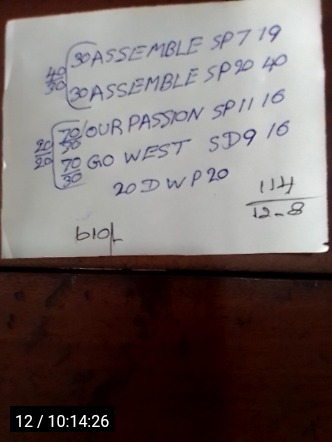 40/30 30 ASSEMBLE SP 7 19
30 ASSEMBLE SP 20 40
20/20 70/50 OUR PASSION SP 11 16
70/30 GO WEST SD9 16
20 D W P 20
114
12-8
12 / 10:14:26